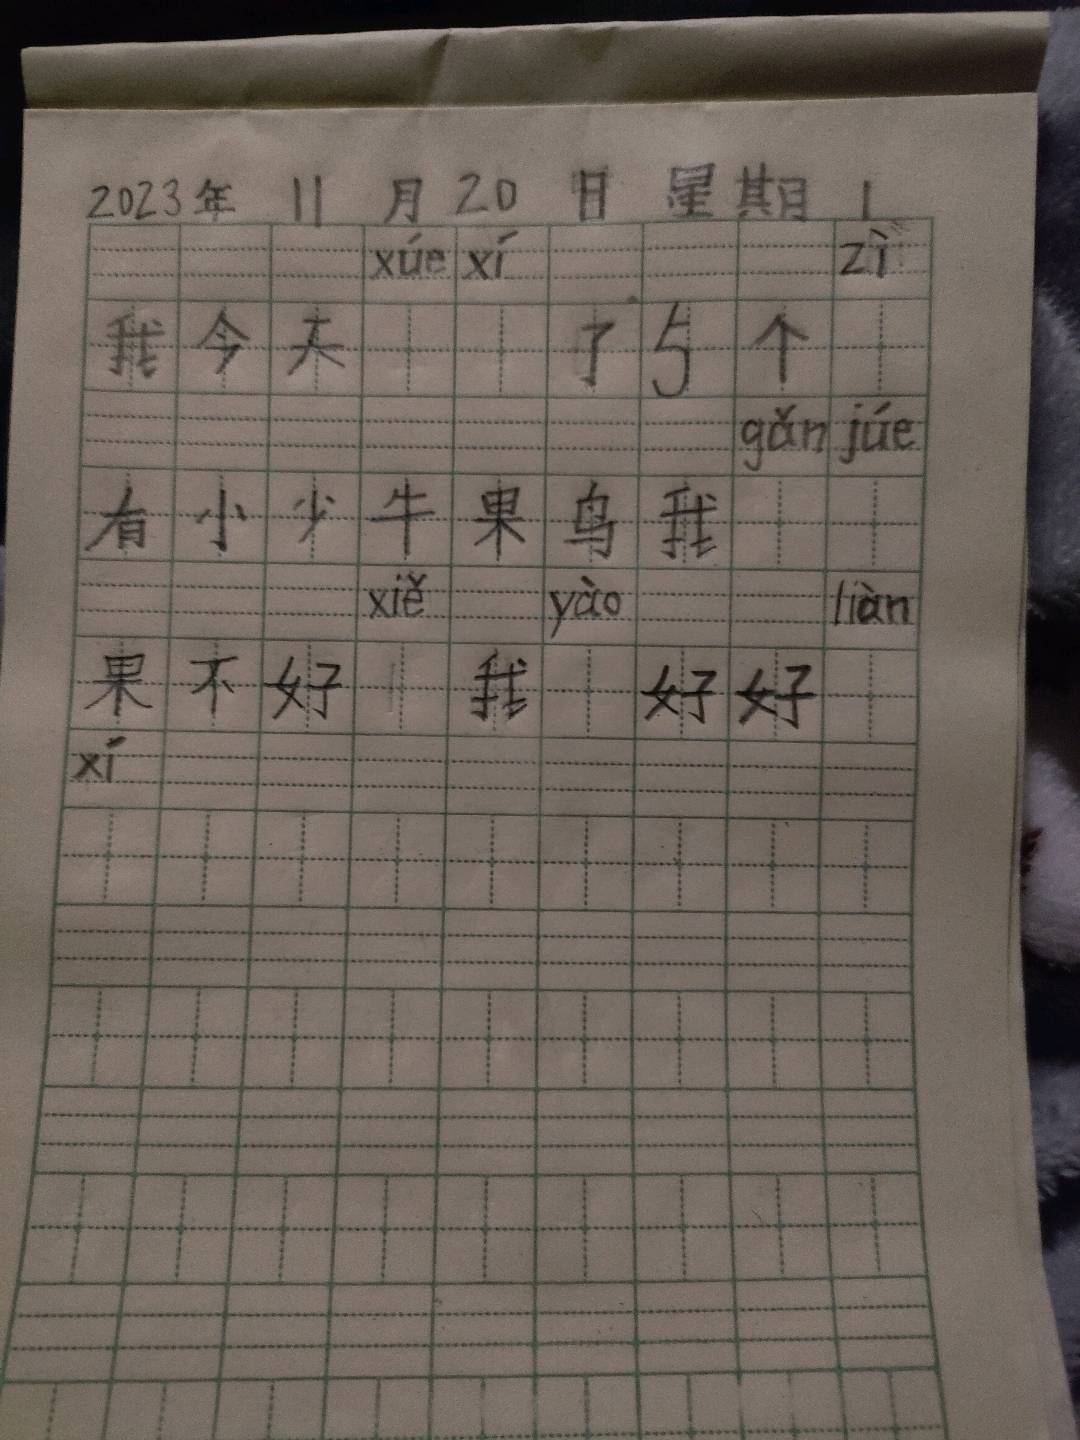 2023年 11 月 20 日 星期 1
xúe xí zì
我今天 了5个
gǎn júe
有小少牛果鸟我
xiě yào liàn
果不好 我 好好
xí